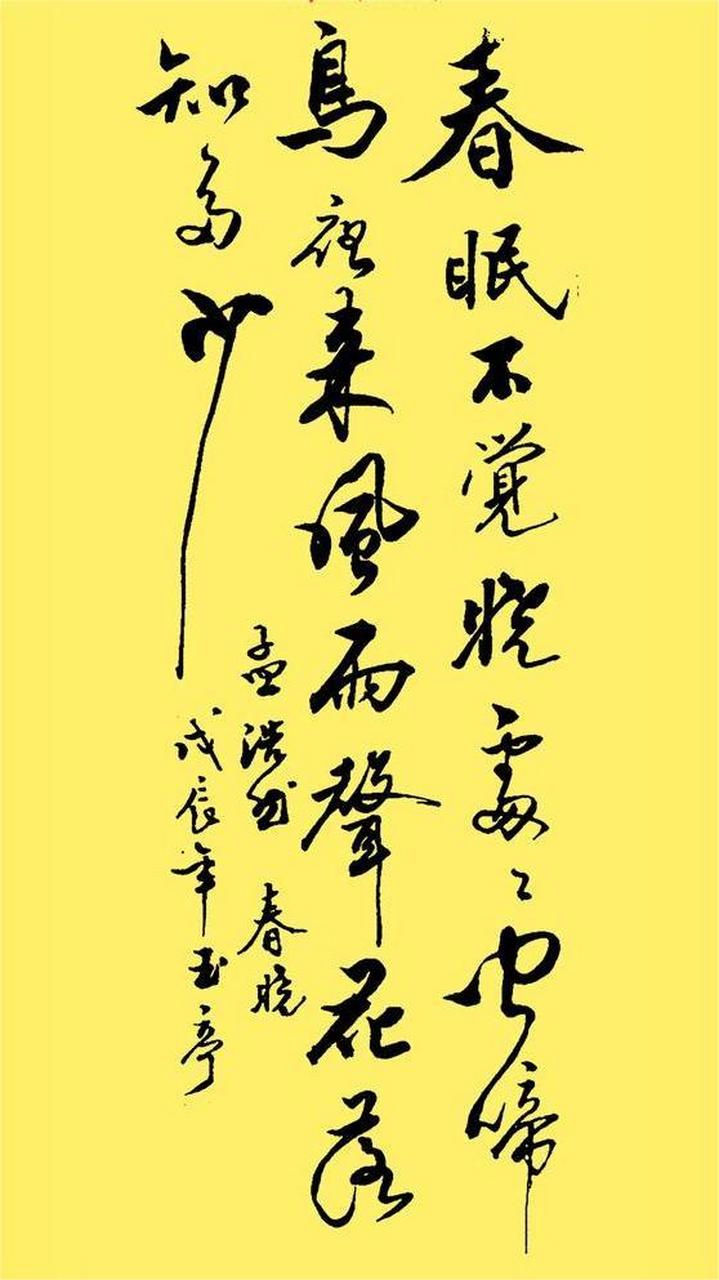 春眠不覺曉處〻聞啼
鳥夜來風雨聲花落
知多少
孟浩然 春曉
戊辰年玉亭